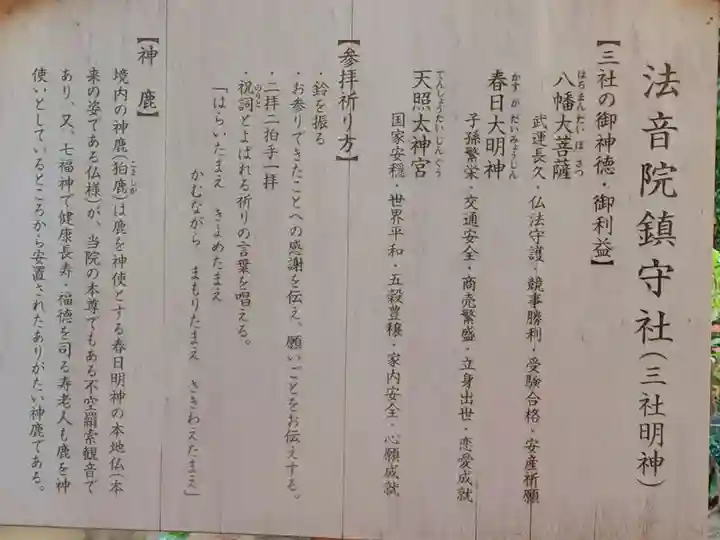 法音院鎮守社(三社明神)
【三社の御神徳・御利益】
はちまんだいぼさつ
八幡大菩薩
武運長久・仏法守護・競事勝利・受験合格・安産祈願
かすがだいみょうじん
春日大明神
子孫繁栄・交通安全・商売繁盛・立身出世・恋愛成就
てんしょうたいじんぐう
天照太神宮
国家安穏・世界平和・五穀豊穣・家内安全・心願成就
【参拝祈り方】
・鈴を振る
・お参りできたことへの感謝を伝え、願いごとをお伝えする。
・二拝二拍手一拝
のりと
・祝詞とよばれる祈りの言葉を唱える。
「はらいたまえ きよめたまえ
かむながら まもりたまえ さきわえたまえ」
【神鹿】
こましか
境内の神鹿(狛鹿)は鹿を神使とする春日明神の本地仏(本
来の姿である仏様)が、当院の本尊でもある不空羂索観音で
あり、又、七福神で健康長寿・福徳を司る寿老人も鹿を神
使いとしているところから安置されたありがたい神鹿である。